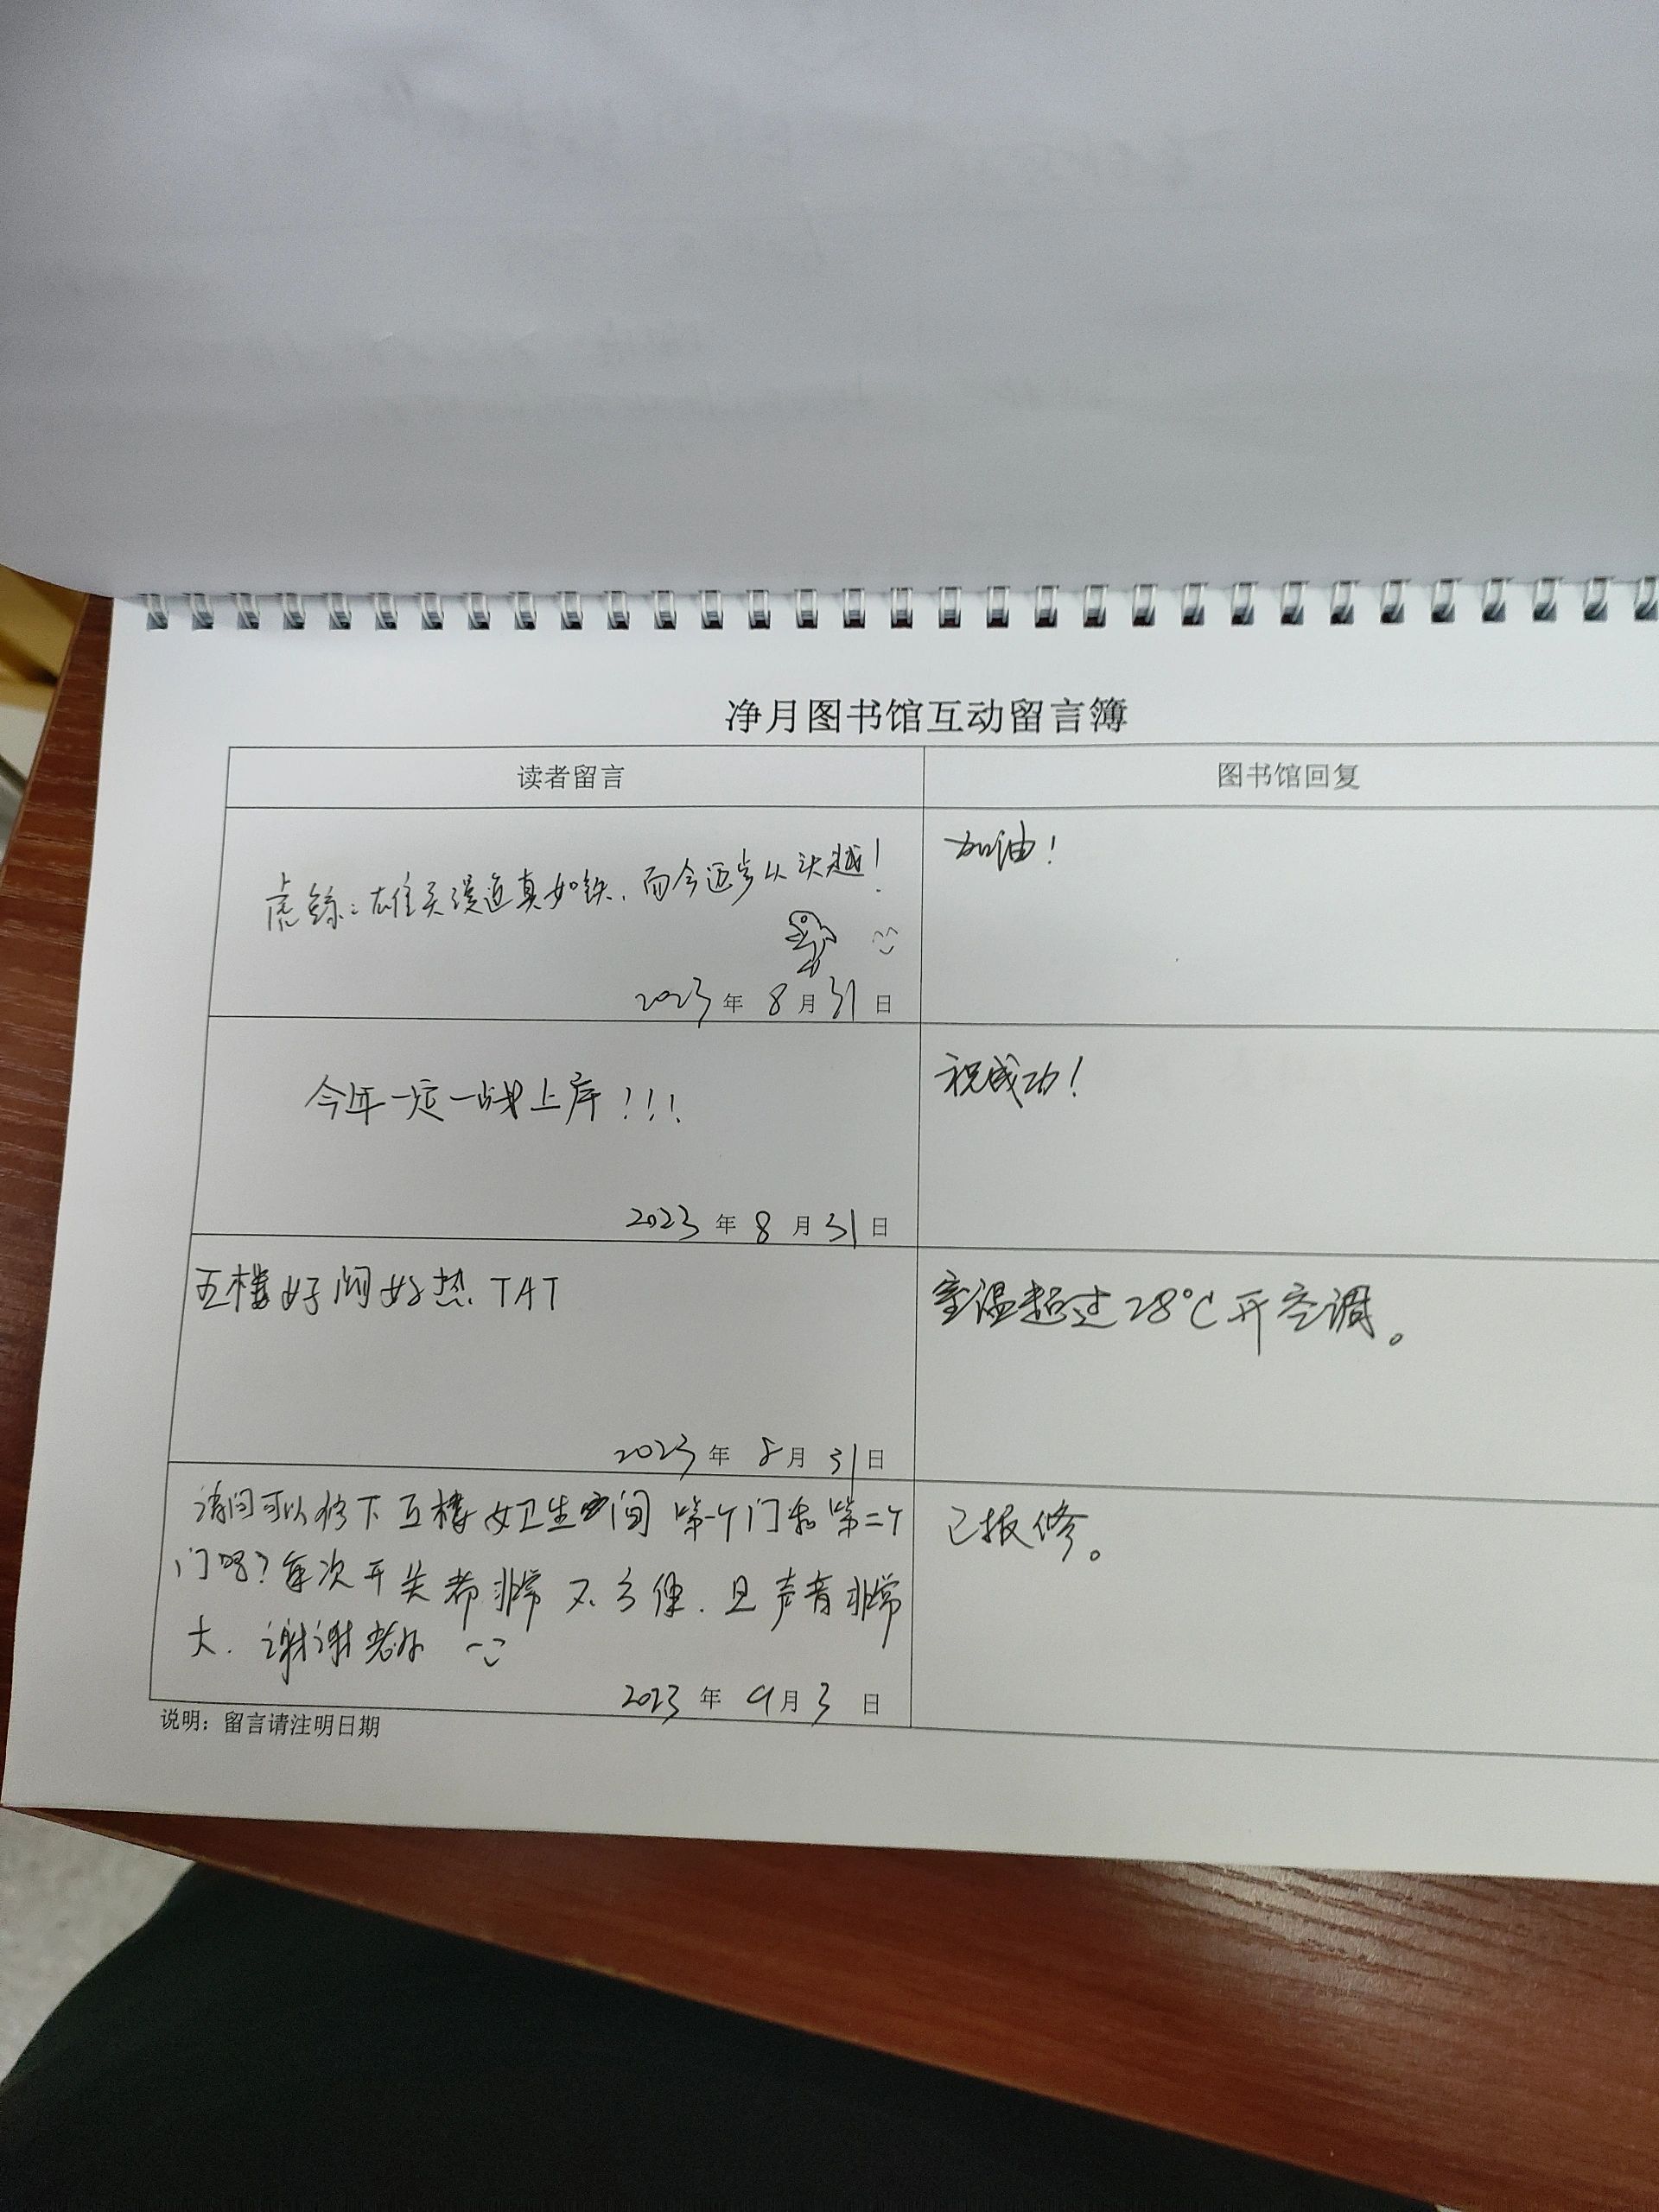 净月图书馆互动留言簿
读者留言
图书馆回复
虎鲸：雄关漫道真如铁，而今迈步从头越！
加油！
2023年8月31日
今年一定一战上岸！！！
祝成功！
2023年8月31日
五楼好闷好热 TAT
室温超过28℃开空调。
2023年8月31日
请问可以修下五楼女卫生间 第一个门和第二个
门吗？每次开关都非常不方便．且声音非常
大．谢谢老师
已报修。
2023年9月3日
说明：留言请注明日期